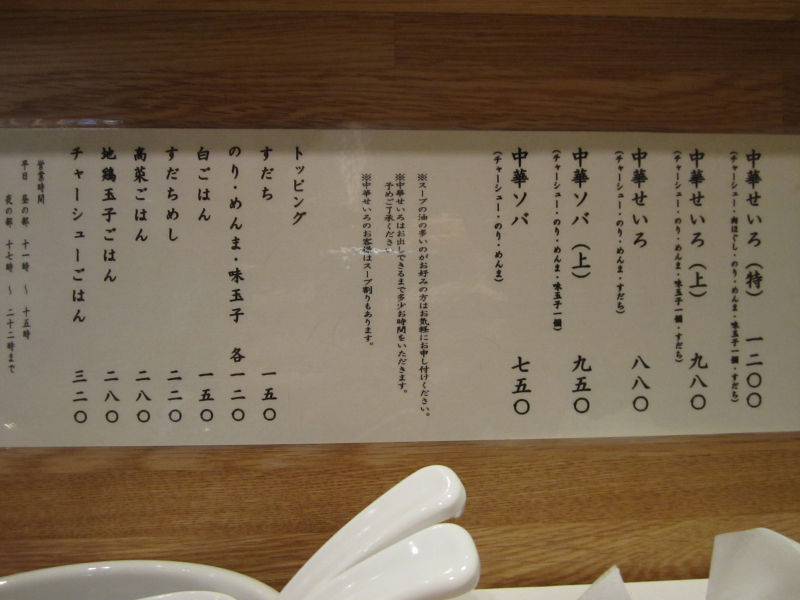 中華せいろ（特） 一二〇〇
（チャーシュー・肉ほぐし・のり・めんま・味玉子一個・すだち）
中華せいろ（上） 九八〇
（チャーシュー・のり・めんま・味玉子一個・すだち）
中華せいろ 八八〇
（チャーシュー・のり・めんま・すだち）
中華ソバ（上） 九五〇
（チャーシュー・のり・めんま・味玉子一個）
中華ソバ 七五〇
（チャーシュー・のり・めんま）
※スープの油の多いのがお好みの方はお気軽にお申し付けください。
※中華せいろはお出しできるまで多少お時間をいただきます。
予めご了承ください。
※中華せいろのお客様はスープ割りもあります。
トッピング
すだち 一五〇
のり・めんま・味玉子 各一二〇
白ごはん 一五〇
すだちめし 二二〇
高菜ごはん 二八〇
地鶏玉子ごはん 二八〇
チャーシューごはん 三二〇
営業時間
平日 昼の部 十一時 ～ 十五時
夜の部 十七時 ～ 二十二時まで